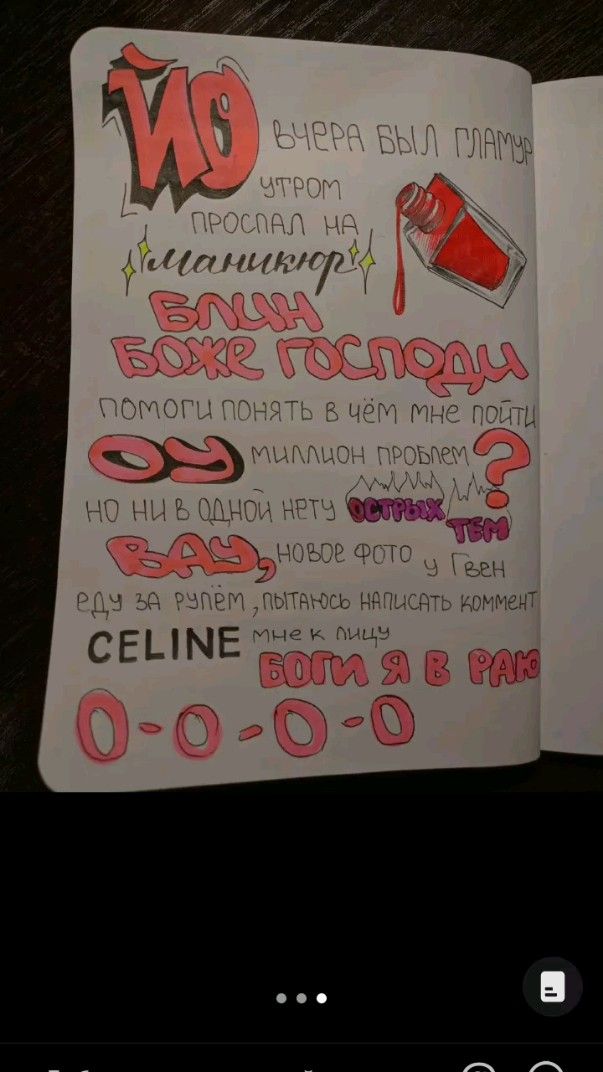 ЙО вчера был гламур
утром
проспал на
маникюр
БЛИН
БОЖЕ ГОСПОДИ
помоги понять в чём мне пойти
ОУ миллион проблем?
но ни в одной нету ОСТРЫХ
ТЕМ
ВАУ, новое фото у Гвен
еду за рулём, пытаюсь написать коммент
CELINE мне к лицу
БОГИ Я В РАЮ
О-О-О-О